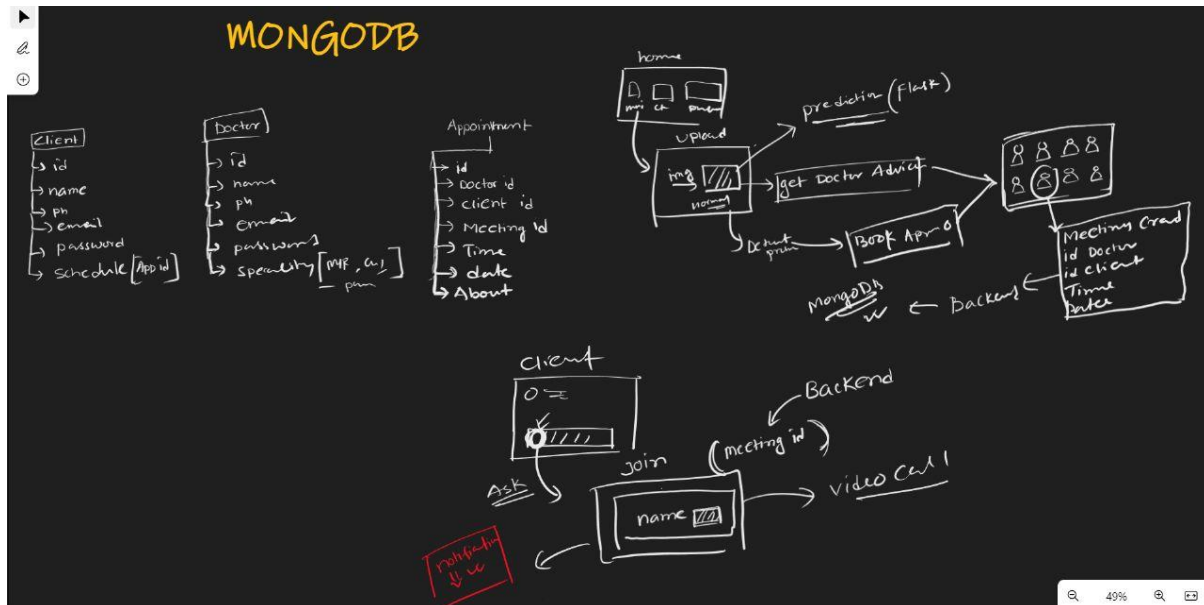 MONGODB
Client
id
name
ph
email
password
schedule [App id]
Doctor
id
name
ph
email
password
Appointment
id
Doctor id
client id
Meeting Id
Time
date
About
home
upload
img
normal
prediction (Flask)
get Doctor Advice
Book
id Doctor
id client
Time
Backend
MongoDB
Client
Ask
Join
name
(meeting id)
Backend
video call
notification
49%